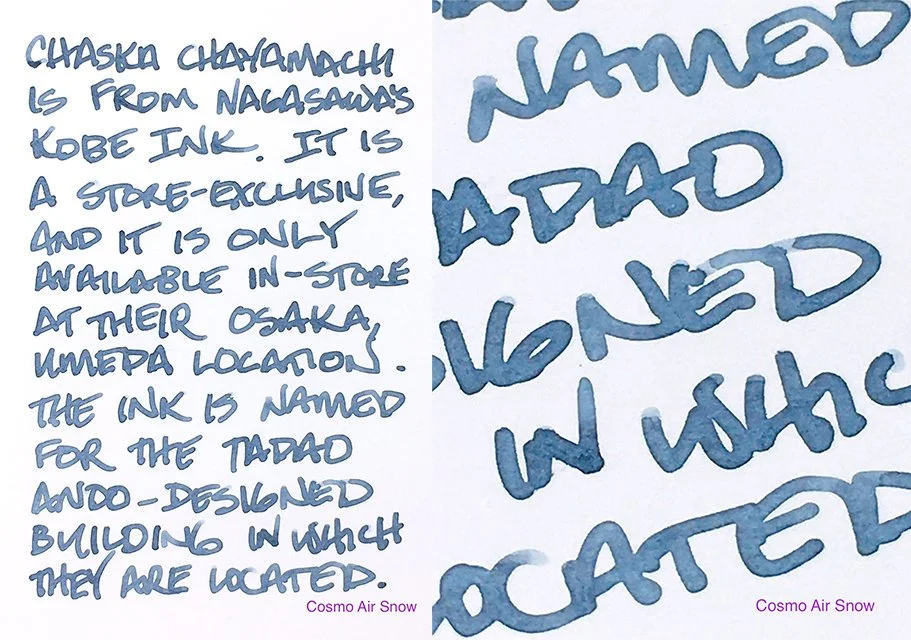 CHASKA CHAYAMACHI
IS FROM NAGASAWA'S
KOBE INK. IT IS
A STORE-EXCLUSIVE,
AND IT IS ONLY
AVAILABLE IN-STORE
AT THEIR OSAKA,
UMEDA LOCATION.
THE INK IS NAMED
FOR THE TADAO
ANDO-DESIGNED
BUILDING IN WHICH
THEY ARE LOCATED.
Cosmo Air Snow
NAMED
ADAO
SIGNED
IN WHIC
LOCATED
Cosmo Air Snow